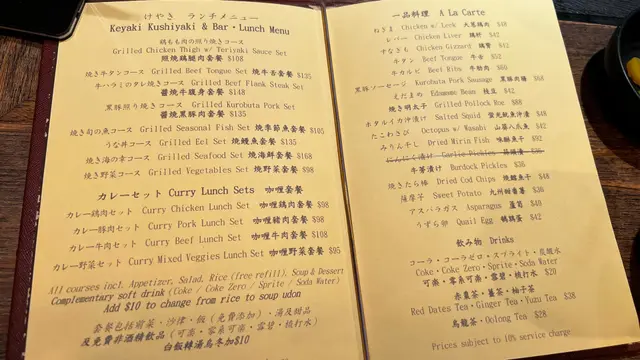 けやき ランチメニュー
Keyaki Kushiyaki & Bar・Lunch Menu
鶏もも肉の照り焼きコース
Grilled Chicken Thigh w/ Teriyaki Sauce Set
照燒鷄腿肉套餐 $108
焼き牛タンコース Grilled Beef Tongue Set 燒牛舌套餐 $135
牛ハラミのタレ焼きコース Grilled Beef Flank Steak Set
醬燒牛腹身套餐 $148
黒豚照り焼きコース Grilled Kurobuta Pork Set
醬燒黑豚肉套餐 $135
焼き旬の魚コース Grilled Seasonal Fish Set 燒季節魚套餐 $105
うな丼コース Grilled Eel Set 燒鰻魚套餐 $135
焼き海の幸コース Grilled Seafood Set 燒海鮮套餐 $168
焼き野菜コース Grilled Vegetables Set 燒野菜套餐 $98
カレーセット Curry Lunch Sets 咖喱套餐
カレー鶏肉セット Curry Chicken Lunch Set 咖喱鷄肉套餐 $98
カレー豚肉セット Curry Pork Lunch Set 咖喱豬肉套餐 $98
カレー牛肉セット Curry Beef Lunch Set 咖喱牛肉套餐 $108
カレー野菜セット Curry Mixed Veggies Lunch Set 咖喱野菜套餐 $95
All courses incl. Appetizer, Salad, Rice (free refill), Soup & Dessert
Complementary soft drink (Coke / Coke Zero / Sprite / Soda Water)
Add $10 to change from rice to soup udon
套餐包括前菜、沙律、飯(免費添加)、湯及甜品
及免費非酒精飲品(可樂、零系可樂、雪碧、梳打水)
白飯轉湯烏冬加$10
一品料理 A La Carte
ねぎま Chicken w/ Leek 大葱鷄肉 $48
レバー Chicken Liver 鷄肝 $42
すなぎも Chicken Gizzard 鷄腎 $42
牛タン Beef Tongue 牛舌 $52
牛カルビ Beef Ribs 牛肋肉 $60
黒豚ソーセージ Kurobuta Pork Sausage 黑豚肉腸 $68
えだまめ Edamame Bean 枝豆 $42
焼き明太子 Grilled Pollock Roe $88
ホタルイカ沖漬け Salted Squid 螢光魷魚沖漬 $48
たこわさび Octopus w/ Wasabi 山葵八爪魚 $42
みりん干し Dried Mirin Fish 味醂魚 $92
にんにく漬け Garlic Pickles 蒜頭漬 $36
牛蒡漬け Burdock Pickles $38
焼きたら棒 Dried Cod Chips 燒鱈魚干 $48
薩摩芋 Sweet Potato 九州甜番薯 $30
アスパラガス Asparagus 蘆筍 $48
うずら卵 Quail Egg 鵪鶉蛋 $42
飲み物 Drinks
コーラ・コーラゼロ・スプライト・炭酸水
Coke・Coke Zero・Sprite・Soda Water
可樂・零系可樂・雪碧・梳打水 $20
赤棗茶・薑茶・柚子茶
Red Dates Tea・Ginger Tea・Yuzu Tea $38
烏龍茶・Oolong Tea $28
Prices subject to 10% service charge